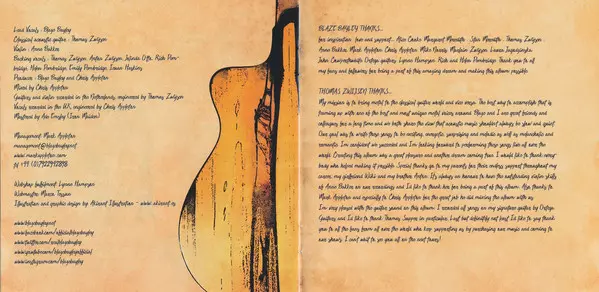 Lead Vocals - Blaze Bayley
Classical acoustic guitar - Thomas Zwijsen
Violin - Anne Bakker
Backing vocals - Thomas Zwijsen, Anne Bakker,
Produced - Blaze Bayley and Chris Appleton
Mixed by Chris Appleton
Guitars and violin recorded in the Netherlands, engineered by Thomas Zwijsen
Vocals recorded in the UK, engineered by Chris Appleton
Mastered by Ade Emsley (Iron Maiden)
Management: Mark Appleton
management@blazebayley.net
www.markappleton.com
Webshop fulfilment: Lynne Hampson
Webmaster:
Illustration and graphic design by Akirant Illustration - www.akirant.es
www.blazebayley.net
www.facebook.com/officialblazebayley
www.twitter.com/
www.youtube.com/blazebayleyofficial
www.instagram.com/blazebayley
BLAZE BAYLEY THANKS...
For inspiration, love and support... Alice Cooke, Margaret Meredith, John Meredith, Thomas Zwijsen,
Anne Bakker, Mark Appleton, Chris Appleton, Mike
guitars, Lynne Hampson, Rick and Helen Pembridge. Thank you to all
my fans and followers for being a part of this amazing dream and making this album possible.
THOMAS ZWIJSEN THANKS...
My mission is to bring metal to the classical guitar world and vice versa. The best way to accomplish that is
teaming up with one of the best and most unique metal voices around. Blaze and I are great friends and
colleagues for a long time and we both share the view that acoustic music shouldn't always be slow and quiet.
Our goal was to write these songs to be exciting, energetic, surprising and melodic as well as melancholic and
romantic. I'm confident we succeeded and I'm looking forward to performing these songs live all over the
world. Creating this album was a great pleasure and another dream coming true. I would like to thank every
body who helped making it possible. Special thanks go to my parents for their endless support throughout my
career, my girlfriend Wiki and my brother Anton. It's always an honour to have the outstanding violin skills
of Anne Bakker on our recordings and I'd like to thank her for being a part of this album. Also thanks to
Mark Appleton and especially to Chris Appleton for the great job he did mixing the album.
I'm very pleased with the guitar sound on this album. I recorded all songs on my signature guitar by Ortega
Guitars, and I'd like to thank Thomas in particular. Last but definitely not least I'd like to say thank
you to all the fans from all over the world who keep supporting us by purchasing our music and coming to
our shows. I can't wait to see you all on the next tours!